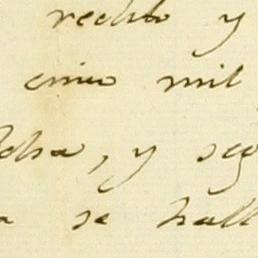 recibo y
cinco mil
dha, y seg
a se hall